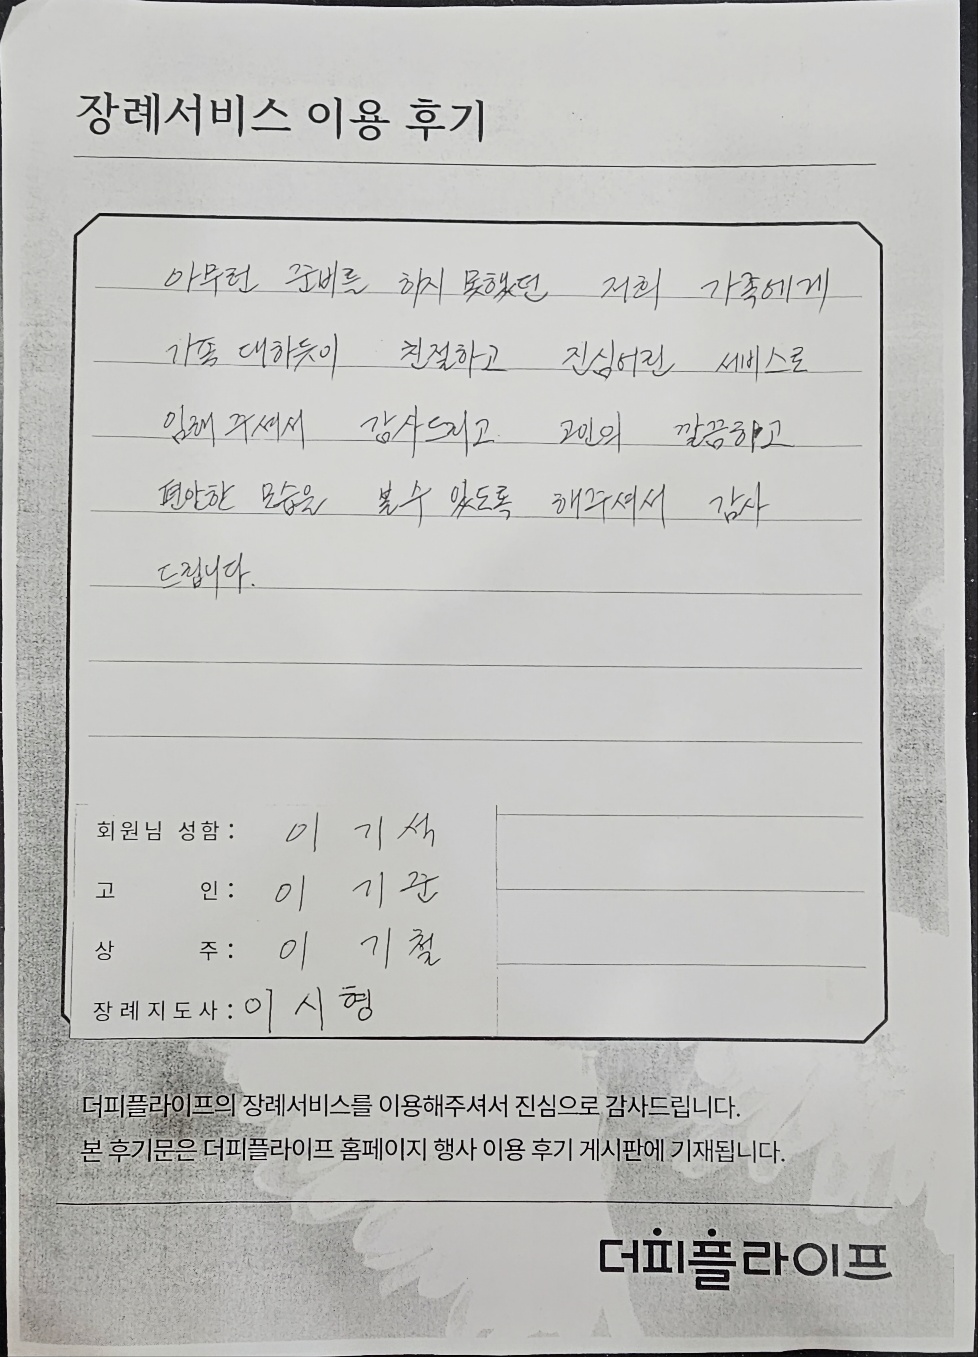 장례서비스 이용 후기
아무런 준비를 하지 못했던 저희 가족에게
가족 대하듯이 친절하고 진심어린 서비스로
임해 주셔서 감사드리고 고인의 깔끔하고
편안한 모습을 볼 수 있도록 해주셔서 감사
드립니다.
회원님 성함: 이 기석
고 인: 이 기준
상 주: 이 기철
장례지도사: 이 시형
더피플라이프의 장례서비스를 이용해주셔서 진심으로 감사드립니다.
본 후기문은 더피플라이프 홈페이지 행사 이용 후기 게시판에 기재됩니다.
더피플라이프